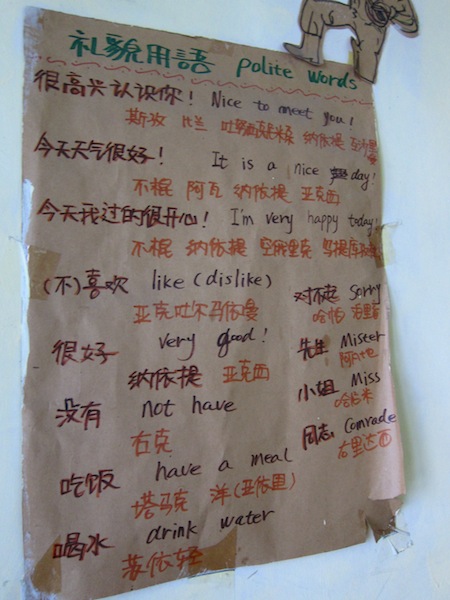 礼貌用語 polite words
很高兴认识你! Nice to meet you!
斯孜 比兰 吐 纳依提
今天天气很好! It is a nice day!
不棍 阿瓦 纳依提 亚克西
今天我过的很开心! I'm very happy today!
不棍 纳依提
(不)喜欢 like (dislike)
亚克吐尔马依曼
很好 very good!
纳依提 亚克西
没有 not have
右克
吃饭 have a meal
塔马克 洋(亚依里)
喝水 drink water
苏依轻
对不起 Sorry
先生 Mister
小姐 Miss
同志 Comrade
右里达西